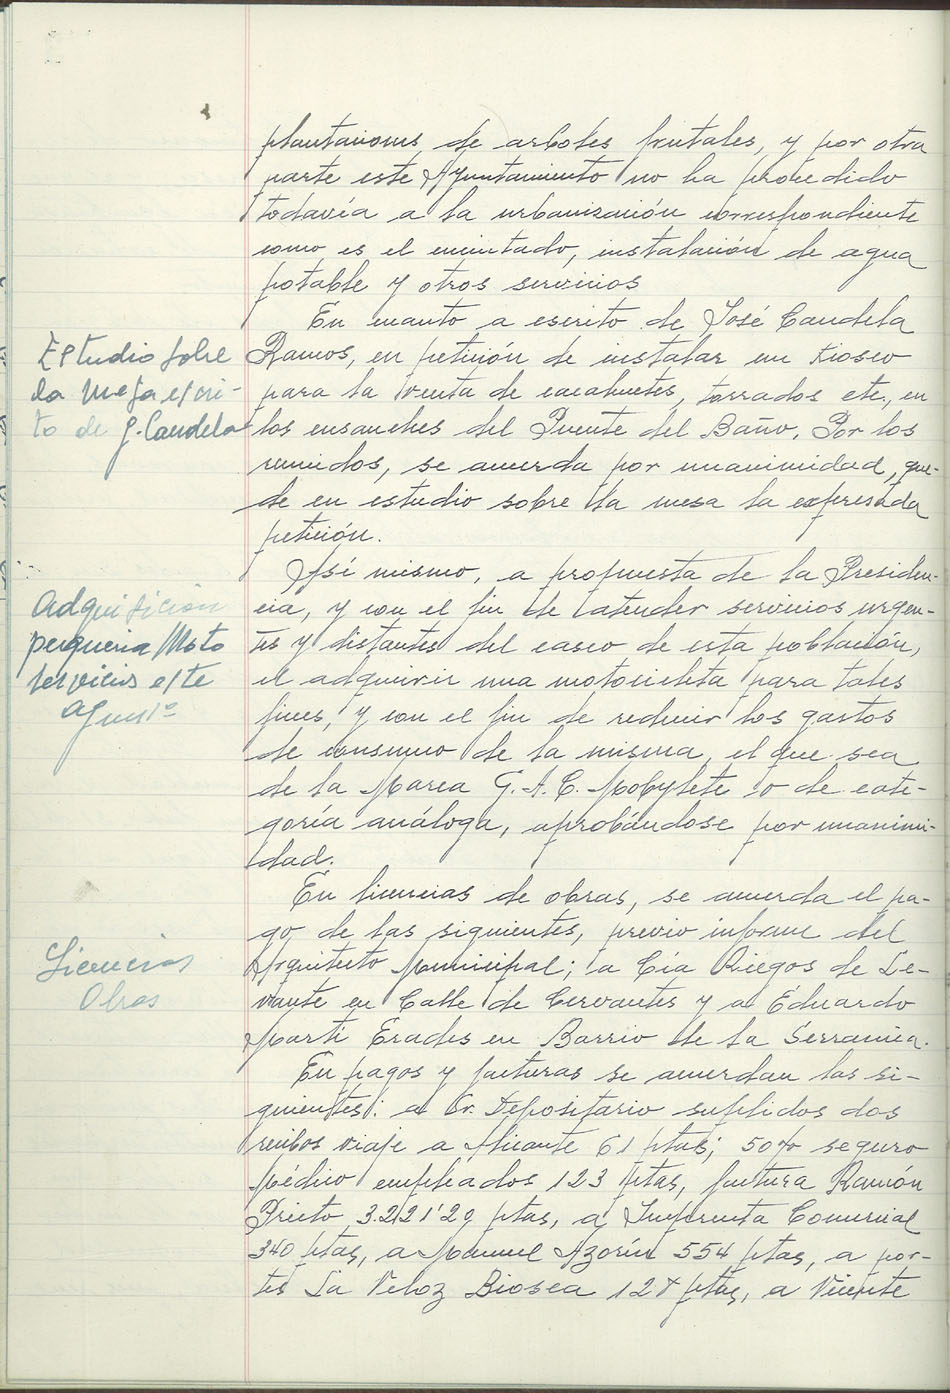 plantaciones de arboles frutales, y por otra
parte este Ayuntamiento no ha procedido
todavía a la urbanización correspondiente
como es el encintado, instalación de agua
potable y otros servicios
En cuanto a escrito de José Candela
Estudio sobre
la mesa escri-
to de J. Candela
Ramos, en petición de instalar un kiosco
para la venta de cacahuetes, torrados etc, en
los ensanches del Puente del Baño. Por los
reunidos, se acuerda por unanimidad, que-
de en estudio sobre la mesa la expresada
petición.
Así mismo, a propuesta de la Presiden-
Adquisición
pequeña Moto
servicios este
Ayunto
cia, y con el fin de atender servicios urgen-
tes y distantes del casco de esta población,
el adquirir una motocicleta para tales
fines, y con el fin de reducir los gastos
de consumo de la misma, el que sea
de la Marca G.A.C. Mobylete o de cate-
goría análoga, aprobándose por unanimi-
dad.
En licencias de obras, se acuerda el pa-
go de las siguientes, previo informe del
Licencias
Obras
Arquitecto Municipal; a Cía Riegos de Le-
vante en Calle de Cervantes y a Eduardo
Martí Erades en Barrio de la Serranica.
En pagos y facturas se acuerdan las si-
guientes: a Sr. Depositario suplidos dos
recibos viaje a Alicante 61 ptas; 50% seguro
Médico empleados 123 ptas, factura Ramón
Prieto 3.221'29 ptas, a Imprenta Comercial
340 ptas, a Manuel Azorín 554 ptas, a por-
tes La Veloz Biosca 127 ptas, a Vicente